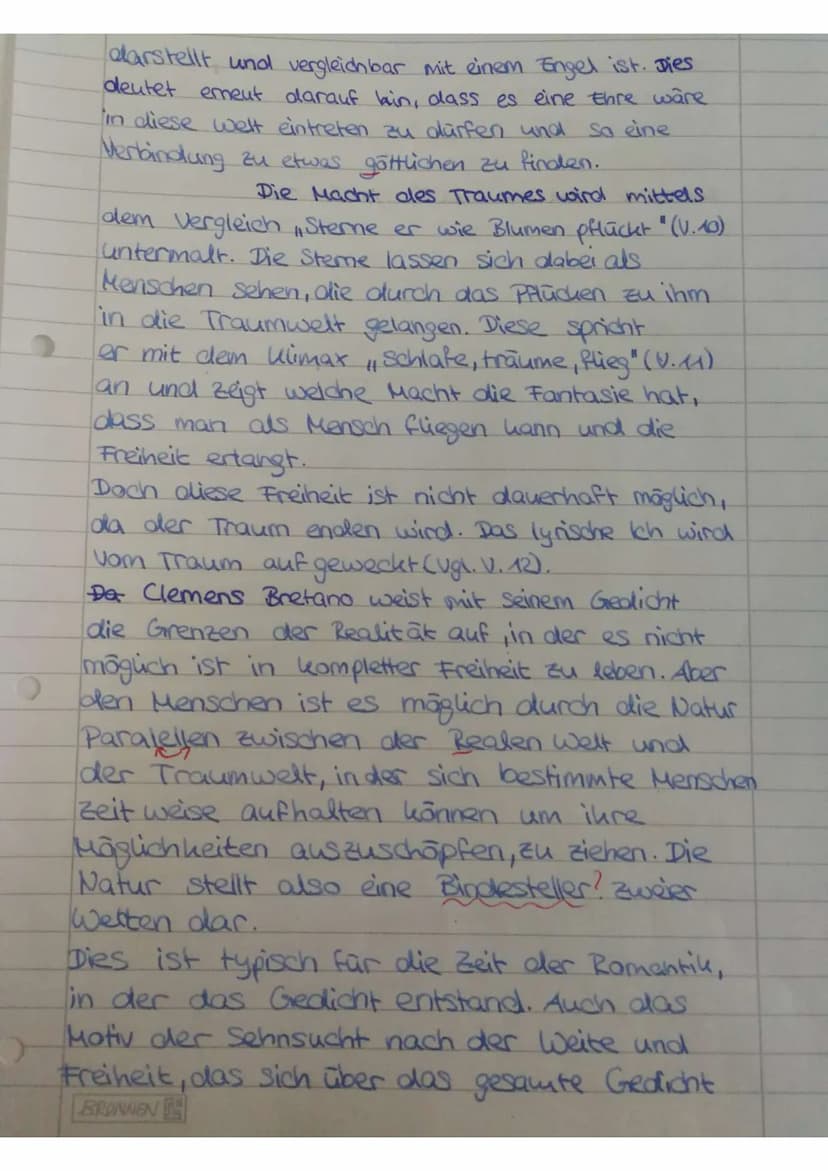 darstellt und vergleichbar mit einem Engel ist. Dies
deutet erneut darauf hin, dass es eine Ehre wäre
in diese Welt eintreten zu dürfen und so eine
Verbindung zu etwas göttlichen zu finden.
Die Macht des Traumes wird mittels
dem Vergleich „Sterne er wie Blumen pflückt" (V.10)
untermalt. Die Sterne lassen sich dabei als
Menschen sehen, die durch das Pflücken zu ihm
in die Traumwelt gelangen. Diese spricht
er mit dem Klimax „schlafe, träume, flieg" (V.11)
an und zeigt welche Macht die Fantasie hat,
dass man als Mensch fliegen kann und die
Freiheit erlangt.
Doch diese Freiheit ist nicht dauerhaft möglich,
da der Traum enden wird. Das lyrische Ich wird
vom Traum aufgeweckt (vgl. V. 12).
Der Clemens Bretano weist mit seinem Gedicht
die Grenzen der Realität auf, in der es nicht
möglich ist in kompletter Freiheit zu leben. Aber
den Menschen ist es möglich durch die Natur
Paralellen zwischen der Realen Welt und
der Traumwelt, in der sich bestimmte Menschen
zeitweise aufhalten können um ihre
Möglichkeiten auszuschöpfen, zu ziehen. Die
Natur stellt also eine Bindesteller? zweier
Welten dar.
Dies ist typisch für die Zeit der Romantik,
in der das Gedicht entstand. Auch das
Motiv der Sehnsucht nach der Weite und
Freiheit, das sich über das gesamte Gedicht
BRUNNEN